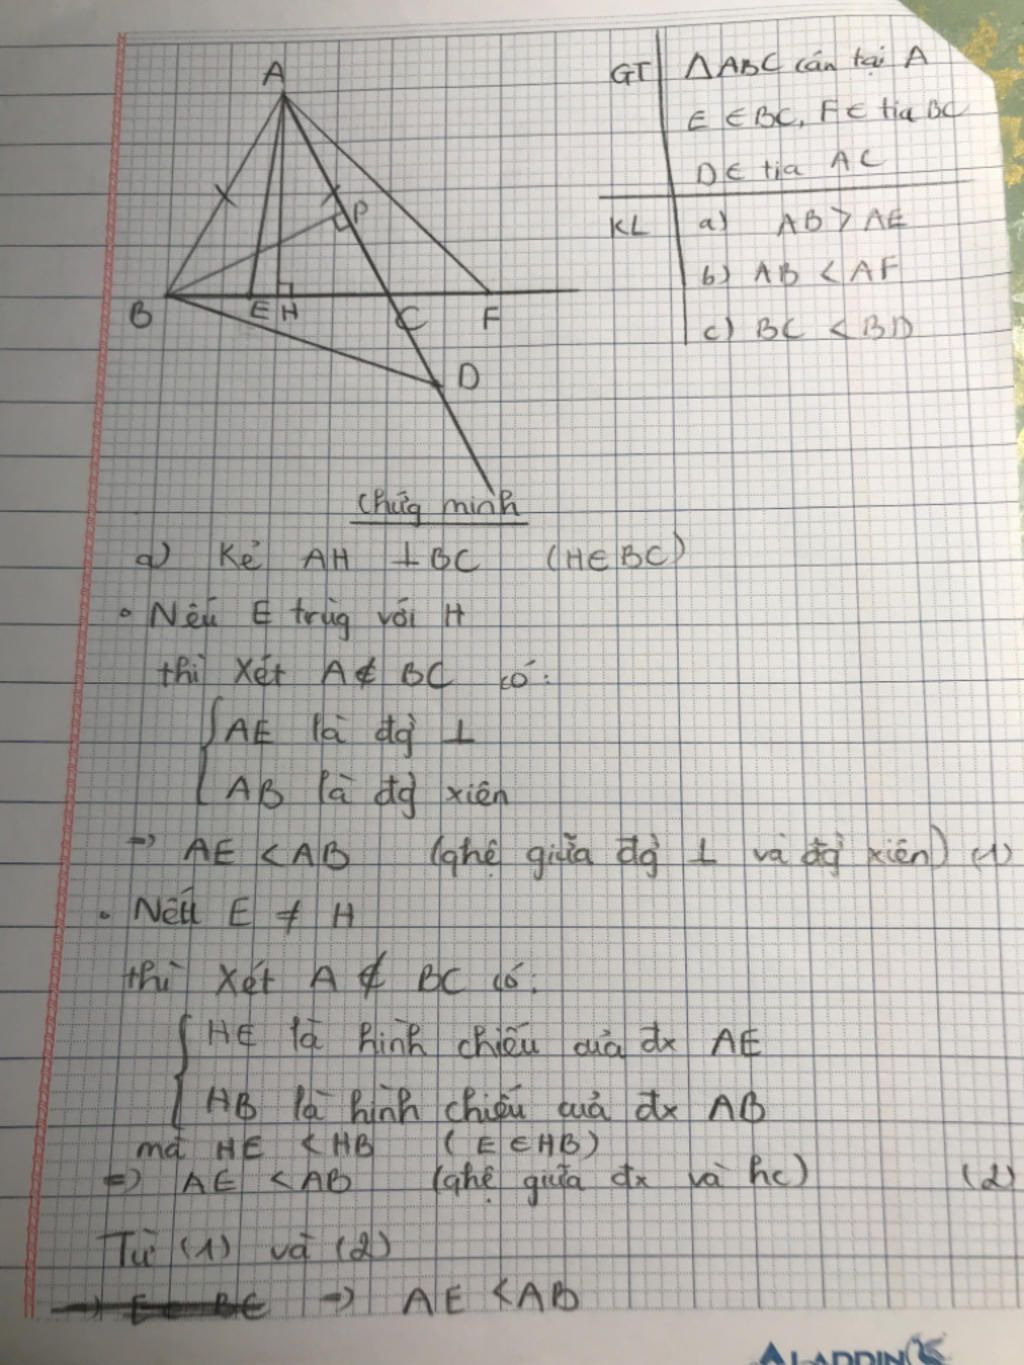 A
B
E
H
C
F
P
D
GT
ΔABC cân tại A
E ∈ BC, F ∈ tia BC
D ∈ tia AC
KL
a) AB > AE
b) AB < AF
c) BC < BD
Chứg minh
a) Kẻ AH ⊥ BC (H∈BC)
• Nếu E trùg với H
thì Xét A ∉ BC có:
{ AE là đg̀ ⊥
AB là đg̀ xiên
→ AE < AB (qhệ giữa đg̀ ⊥ và đg̀ xiên) (1)
• Nếu E ≠ H
thì Xét A ∉ BC có:
{ HE là hình chiếu của đx AE
HB là hình chiếu của đx AB
mà HE < HB (E ∈ HB)
=> AE < AB (qhệ giữa đx và hc) (2)
Từ (1) và (2)
→ AE < AB
ALADDIN